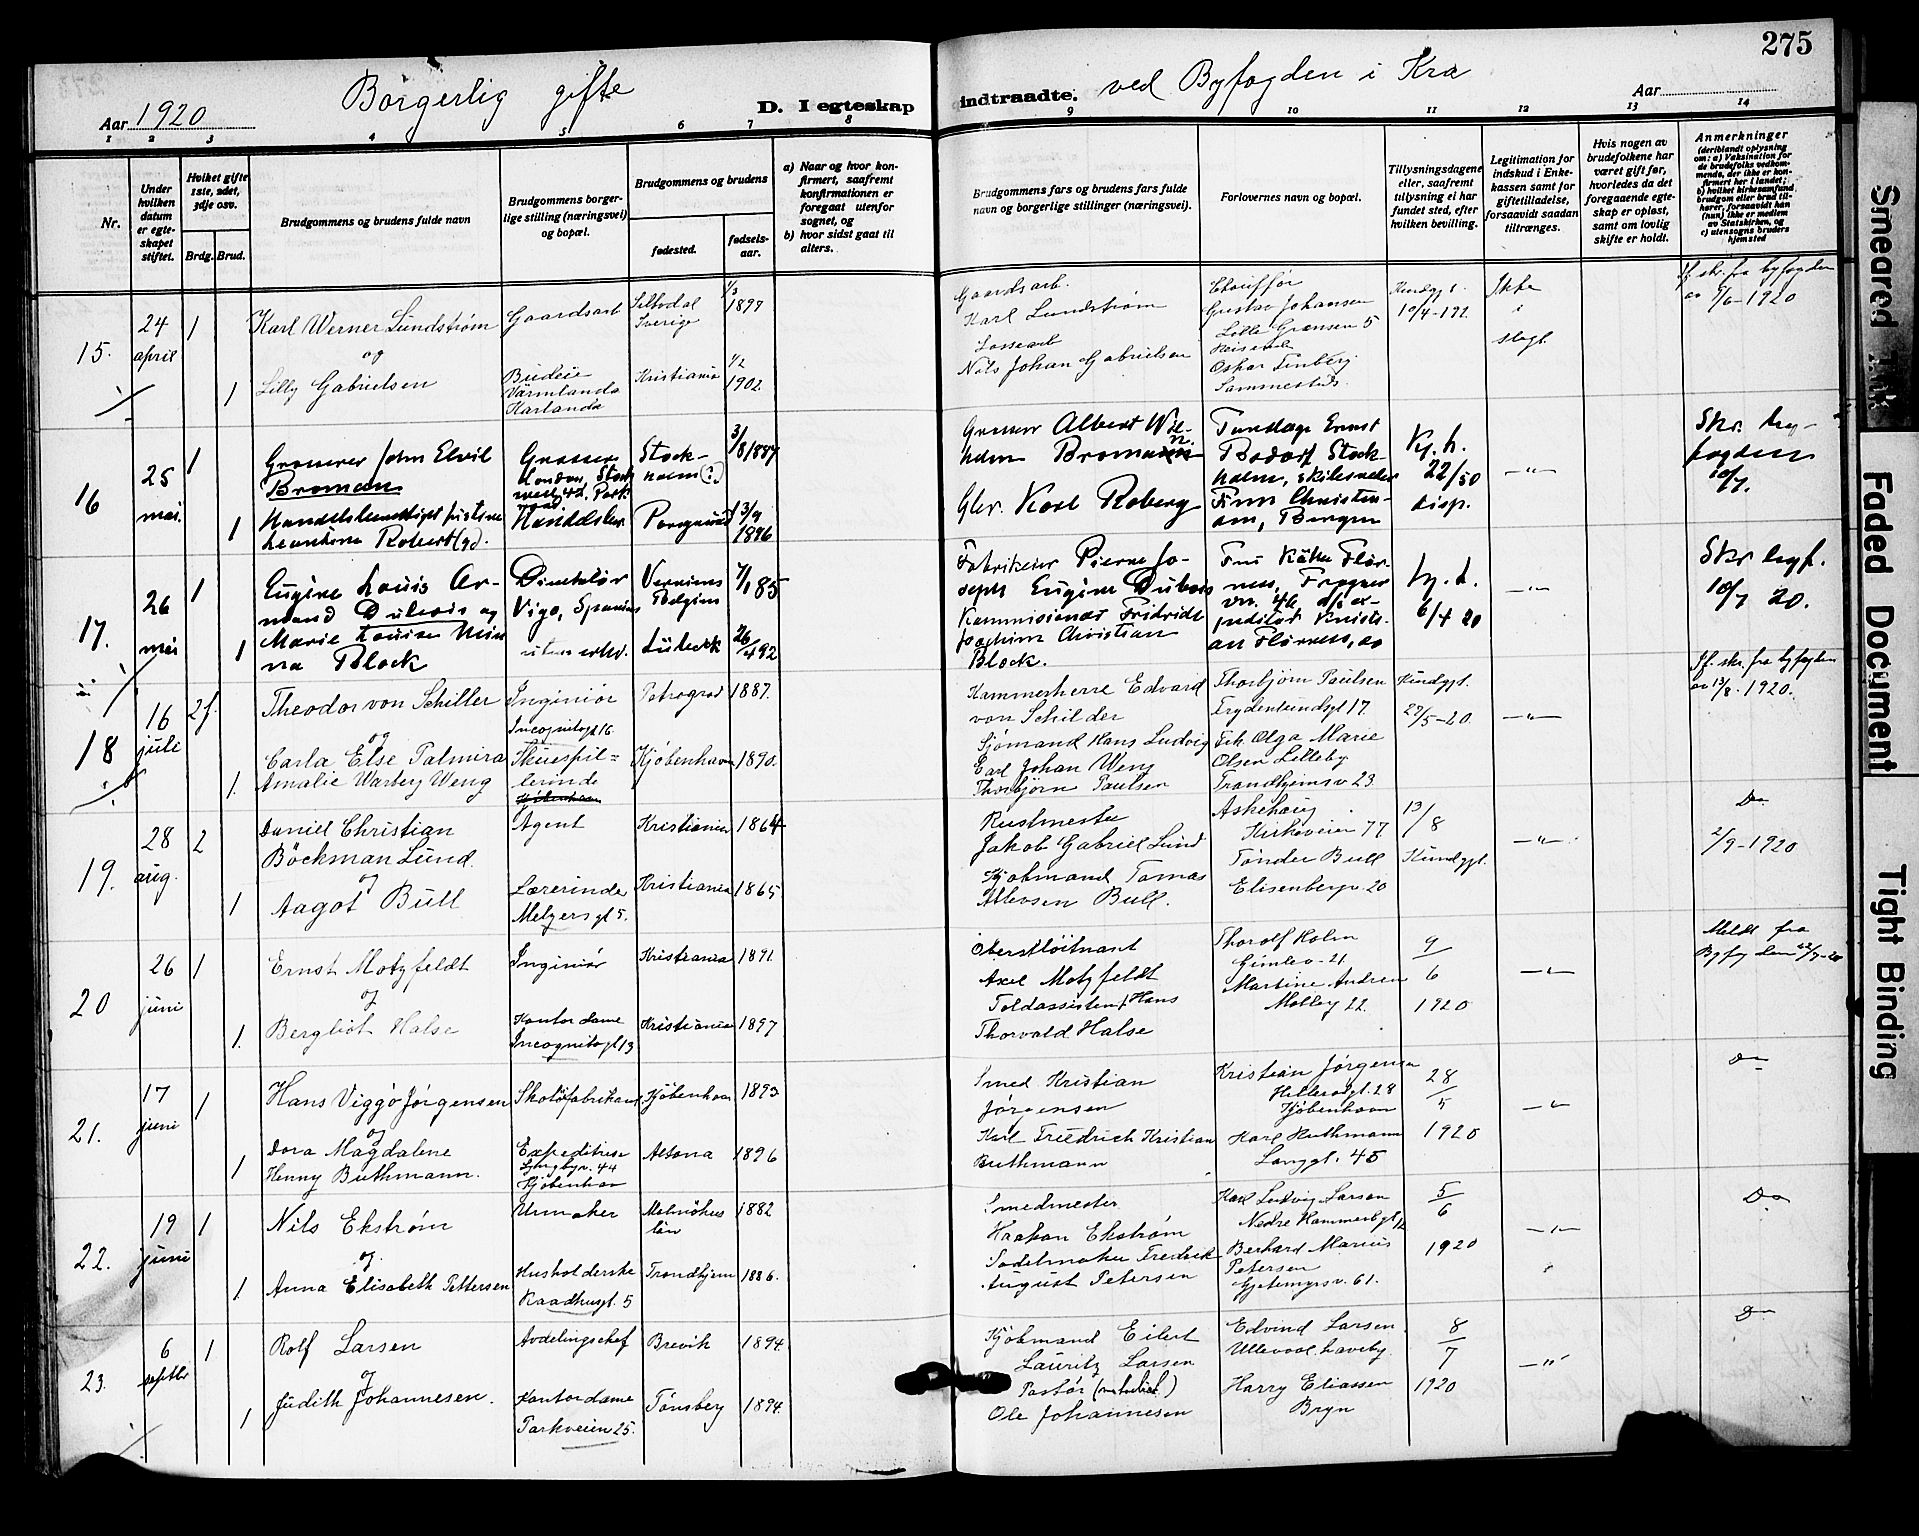 275
Borgerlig gifte
ved Byfogden i Kra
Aar 1920
D. I egteskap
indtraadte.
Aar
1 2 3 4 5 6 7 8
9 10 11 12 13 14
Nr.
Under hvilken datum er egteskapet stiftet.
Hvilket gifte 1ste, 2det, 3dje osv.
Brdg. Brud.
Brudgommens og brudens fulde navn
Brudgommens borgerlige stilling (næringsvei) og bopæl.
Brudgommens og brudens
fødested.
fødselsaar.
a) Naar og hvor konfirmert, saafremt konfirmationen er foregaat utenfor sognet, og
b) hvor sidst gaat til alters.
Brudgommens fars og brudens fars fulde navn og borgerlige stillinger (næringsvei).
Forlovernes navn og bopæl.
Tillysningsdagene eller, saafremt tillysning ei har fundet sted, efter hvilken bevilling.
Legitimation for indskud i Enkekassen samt for giftetilladelse, forsaavidt saadan tiltrænges.
Hvis nogen av brudefolkene har været gift før, hvorledes da det foregaaende egteskap er opløst, samt om lovlig skifte er holdt.
Anmerkninger
(deriblandt oplysning om: a) Vaksination for de brudefolks vedkommende, der ikke er konfirmert her i landet; b) hvilket kirkesamfund brudgom eller brud tilhører, forsaavidt han (hun) ikke er medlem av Statskirken, og c) utensogns bruders hjemsted
15. 24 april 1
Karl Werner Lundstrøm
og
1 Lilly Gabrielsen
Gaardsarb
Budeie
Värmlanda
Karlanda
Sverige
1899
Kristiania 1/2 1902.
Gaardsarb.
Karl Lundstrøm
Lossearb
Nils Johan Gabrielsen
Gustav Johansen
Lille Grensen 5
Oskar Tinberg
Sammesteds.
Ikke
i
slegt
If. skr. fra byfogden
av 5/6-1920
16 25 mai. 1
Grosserer John Elvil
Broman
1
Grosserer
London, Stock
Stockholm (?)
3/8 1887
Porsgrund 13/9 1896
Grosserer Albert Wilhelm Broman
Glev. Karl Roberg
Ernst
Stockholm,
Finn Christensen, Bergen
Kg. h.
22/50
disp.
—"—
Skr. byfogden
10/7.
17. 26 mai 1
Eugine Louis Armand Dubois og
1 Marie Louise Minna Block
Direktør
Vigo, Spanien
uten erhv.
Belgien
7/1 85
Lübeck 26/4 92
Fabrikeier Pierre Joseph Eugine Dubois
Kommisionær Fridrich
Joachim Christian
Block.
Frognervn. 46,
Kg. h.
6/4 20
—"—
Skr. byf.
10/7 20.
18 16 juli 2 f.
Theodor von Schiller
og
1. Carla Else Palmira
Amalie Warberg Weng
Ingeniør
Incognitogt 16
Skuespillerinde
Petrograd 1887.
Kjøbenhavn 1890.
Kammerherre Edvard
von Schilder
Sjømand Hans Ludvig
Carl Johan Weng
Thorbjørn Paulsen
Thorbjørn Paulsen
Frydenlundsgt 17.
Frk. Olga Marie
Olsen Lilleby
Trondhjemsv 23
Kundgjt.
29/5-20.
—"—
If. skr. fra byfogden
av 13/8. 1920.
19. 28 aug. 2
Daniel Christian
Böckman Lund
og
1 Aagot Bull
Agent
Lærerinde
Meltzersgt 5.
Kristiania 1864
Kristiania 1865
Rustmester
Jakob Gabriel Lund
Kjøbmand Tomas
Bull.
Askehaug
Kirkeveien 77
Tønder Bull
Elisenbergv. 20
13/8
Kundgjt.
—"—
Do
2/9-1920
20 26 juni 1
Ernst Motzfeldt
og
1. Bergliot Halse
Ingeniør
Kontordame
Incognitogt 13
Kristiania 1891
Kristiania 1897
Oberstløitnant
Axel Motzfeldt
Toldassistent Hans
Thorvald Halse
Thorolf Holm
Gimlev-21
Martine Andrea
Moltzg 22.
9/6
1920
—"—
Meldt fra
21. 17 juni 1
Hans Viggo Jørgensen
og
1 Dora Magdalene
Henny Buthmann.
Skotöifabrikant
Expeditrise
Lyngbyv. 44
Kjøbenhavn
Kjøbenhavn 1893
Altona 1896
Smed Kristian
Jørgensen
Karl Friedrich Kristian
Buthmann
Kristian Jørgensen
Hillerødgt. 28
Kjøbenhavn
Karl Buthmann
Langgt. 45
28/5
1920
—"—
Do
22. 19 juni 1
Nils Ekstrøm
og
1. Anna Elisabeth Pettersen
Urmaker
Husholderske
Raadhusgt. 5
Malmöhus län 1882
Trondhjem 1886.
Smedmester
Haakon Ekstrøm
Sadelmaker Fredrik
August Petersen
Karl Ludvig Larsen
Nedre Hammersbgt 12
Berhard Marius
Petersen
Gjetemyrsv. 61.
5/6
1920
—"—
Do
23. 6 septbr 1
Rolf Larsen
og
1 Judith Johannesen.
Avdelingschef
Kontordame
Parkveien 25.
Brevik 1894.
Tønsberg 1894.
Kjøbmand Eilert
Lauritz Larsen
Pastor (metodist)
Ole Johannesen
Edvind Larsen
Ullevaal haveby.
Harry Eliassen
Bryn
8/7
1920
—"—
Do
Smeared Ink
Faded Document
Tight Binding